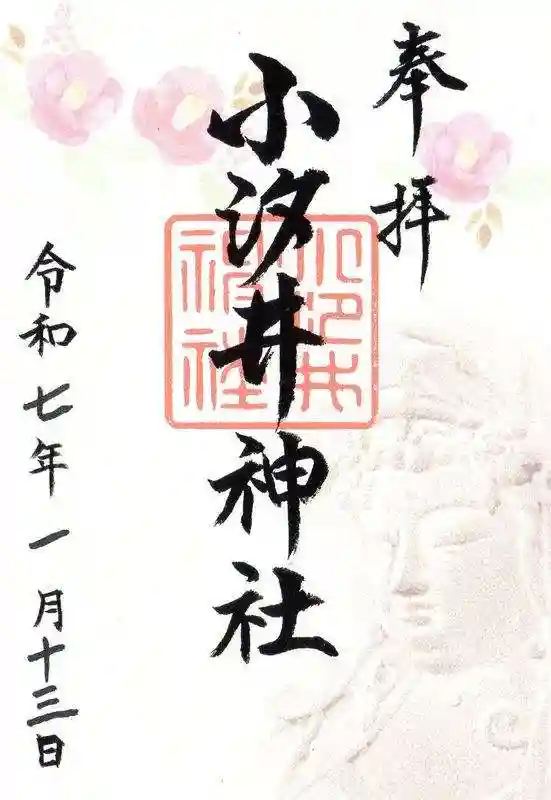 奉拝
小汐井神社
小汐井神社
令和七年一月十三日